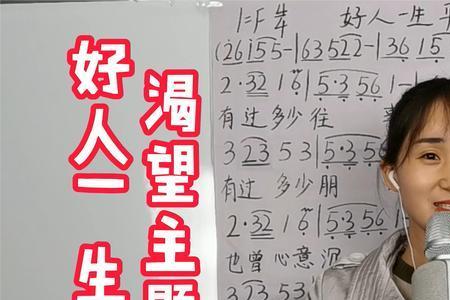 好人一生
渴望主题
1=F 4/4 好人一生平
(26 155-|63 522-|36 15
2·32 16|5·3 56 1-
有过多少往
3 23 5 3|5·3 56
有过 多少朋
2·32 16|5·3 56
也曾心意沉
3 23 53|5·3